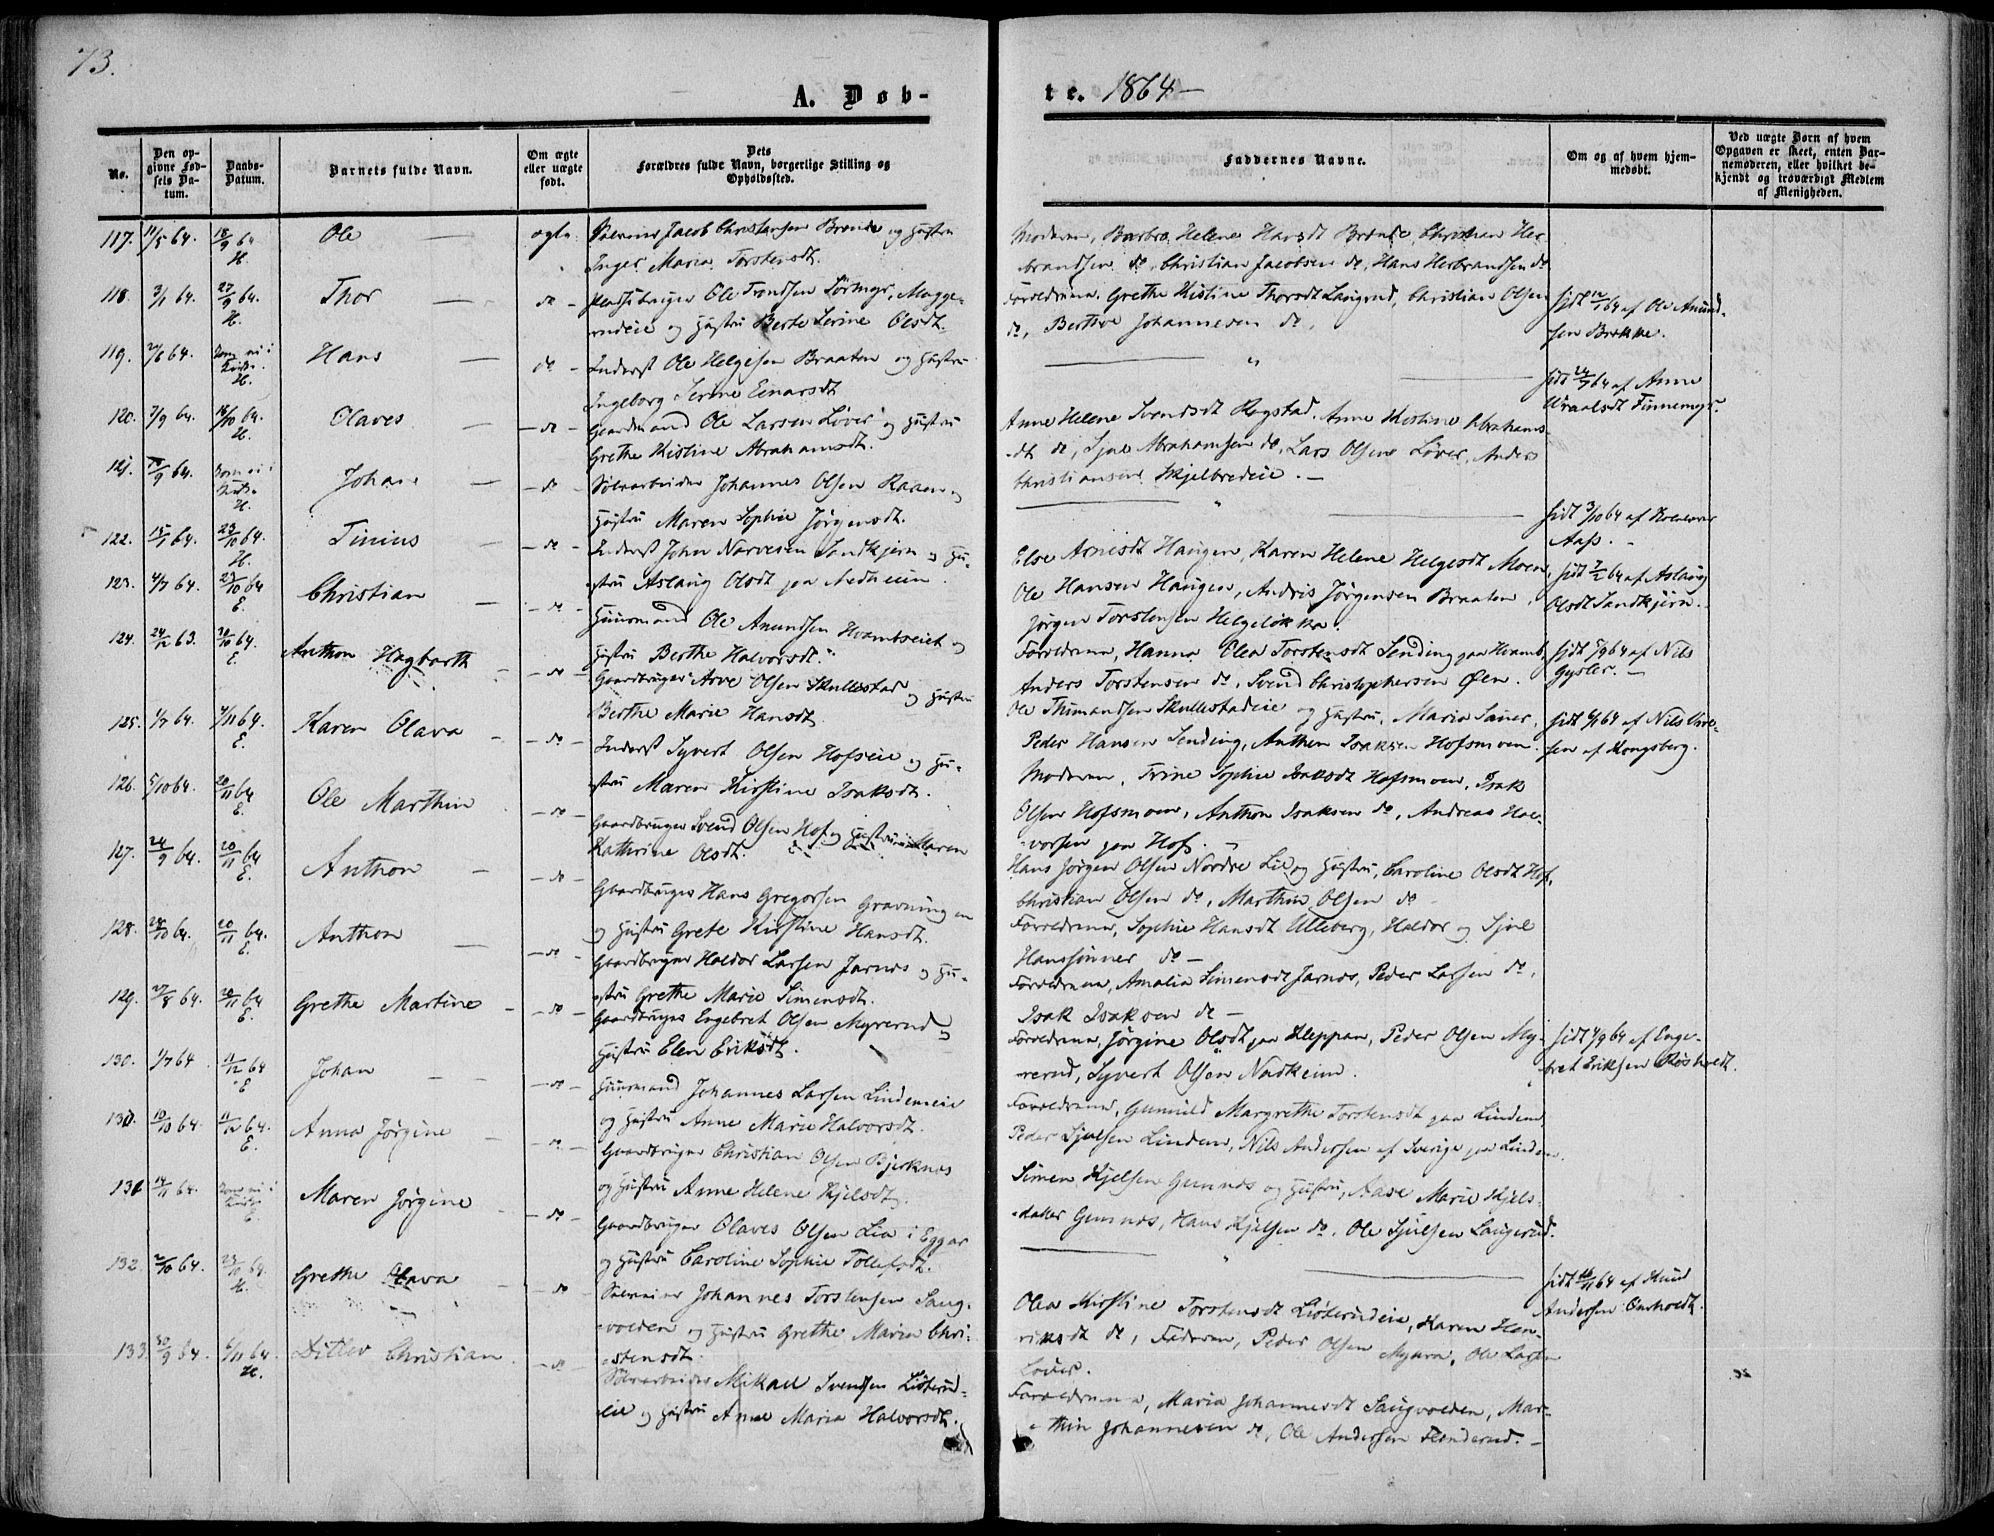 73.
A. Døb-
te. 1864 —
No.
Den op-
givne Fød-
sels Da-
tum.
Daabs-
Datum.
Barnets fulde Navn.
Om ægte
eller uægte
født.
Dets
Forældres fulde Navn, borgerlige Stilling og
Opholdssted.
Faddernes Navne.
Om og af hvem hjem-
medøbt.
Ved uægte Børn af hvem
Opgaven er skeet, enten Bar-
nemoderen, eller hvilket be-
kjendt og troværdigt Medlem
af Menigheden.
117. 11/5 64. 18/9 64 H. Ole — ægte. Jacob Christensen Brende og Hustru
Inger Maria Torstensdt.
Moderen, Barbro Helene Hansdt Brende, Christian Her-
brandsen do, Christian Jacobsen do, Hans Herbrandsen do
118. 3/1 64. 27/9 64. H. Thor — do — Pladsbruger Ole Trondsen Mogge-
rudeie og Hustru Berte Serine Olsdt.
Forældrene, Grethe Kistine Thorsdt Laugrud, Christian Olsen
do, Berthe Johannesen do,
hjdt 12/1 64 af Ole Amund-
sen Brekke.
119. 64. Dom ni i Kirke. H. Hans — do — Inderst Ole Helgesen Braaten og Hustru
Ingeborg Serine Einarsdt
hjdt 64 af Anne
Finnemyr.
120. 7/9 64. 16/10 64. H. Olaves — do — Gaardmand Ole Larsen Løver og Hustru
Grethe Kistine Abrahamsdt.
Anne Helene Svendsdt Rogstad, Anne Kistine Abrahams-
dt do, Sjul Abrahamsen do, Lars Olsen Løver, Anders
Christiansen Skjelbredeie. —
121. 64. H. Johan — do — Sølvarbeider Johannes Olsen Raaen og
Hustru Maren Sophie Jørgensdt.
hjdt 3/10 64 af
Aass. —
122. 15/1 64. 23/10 64. H. Tinius — do — Inderst John Narvesen Sandkjern og Hu-
stru Aslaug Olsdt paa Nedheim.
Else Arnesdt Haugen, Karen Helene Helgesdt Moen,
Ole Hansen Haugen, Andris Jørgensen Braaten,
Jørgen Torstensen Helgeløkka.
hjdt 7/2 64 af Aslaug
Olsdt Sandkjern.
123. 4/7 64. 23/10 64 E. Christian — do — Huusmand Ole Amundsen Hvambseiet og
Hustru Berthe Halvorsdt.
Forældrene, Hanna Olea Torstensdt Sending paa Hvamb,
Anders Torstensen do, Svend Christophersen Øen.
hjdt 5/9 64 af Nils
Gysler. —
124. 24/12 63. 30/10 64. E. Anthon Hagbarth — do — Gaardbruger Arve Olsen Skullestad og Hustru
Berthe Marie Hansdt
Ole Thimandsen Skullestadeie og Hustru, Maria Sauer,
Peder Hansen Sending, Anthon Isaksen Hofsmoen.
hjdt 6/1 64 af Nils
sen af Kongsberg.
125. 1/7 64. 4/11 64. E. Karen Olava — do — Inderst Syvert Olsen Hofseie og Hu-
stru Maren Kirstine Isaksdt.
Moderen, Trine Sophie Isaksdt Hofsmoen, Isak
Olsen Hofsmoen, Anthon Isaksen do, Andreas Hal-
vorsen paa Hof. —
126. 5/10 64. 20/11 64 E. Ole Marthin — do — Gaardbruger Svend Olsen Hof og Hustru Maren
Kathrine Olsdt.
Hans Jørgen Olsen Nordre Lie og Hustru, Caroline Olsdt Hof,
Christian Olsen do, Marthin Olsen do
127. 24/9 64. 20/11 64 E. Anthon — do — Gaardbruger Hans Gregorsen Gravningen
og Hustru Grete Kirstine Hansdt.
Forældrene, Sophie Hansdt Ulleberg, Haldor og Sjul
Hanssønner do —
128. 28/10 64. 20/11 64. E. Anthon — do — Gaardbruger Haldor Larsen Jarnes og Hu-
stru Grethe Marie Simensdt.
Forældrene, Amalia Simensdt Jarnes, Peder Larsen do,
Isak Isaksen do —
129. 27/8 64. 20/11 64 E. Grethe Martine — do — Gaardbruger Engebret Olsen Myrerud og
Hustru Elen Eriksdt.
Forældrene, Jørgine Olsdt paa Kleppan, Peder Olsen My-
rerud, Syvert Olsen Nadheim.
hjdt 1/9 64 af Enge-
bret Eriksen Røsholdt.
130. 1/7 64 11/12 64 E Johan — do — Huusmand Johannes Larsen Lindemeie
og Hustru Anne Marie Halvorsdt.
Forældrene, Gunhild Margrethe Torstensdt paa Lindem,
Peder Sjulsen Lindem, Nils Andersen af Sverige paa Lindem.
130. 10/10 64. 11/12 64. E. Anna Jørgine — do — Gaardbruger Christian Olsen Bjerknes
og Hustru Anne Helene Kjelsdt.
Simen Kjelsen Gunnes og Hustru, Aase Marie Kjels-
datter Gunnes, Hans Kjelsen do, Ole Sjulsen Laugerud.
131 14/11 64. E. Maren Jørgine — do — Gaardbruger Olaves Olsen Lia i Eggar
og Hustru Caroline Sophie Tollefsdt.
hjdt 16/11 64 af Knud
Andersen Omholdt.
132. 2/10 64. 23/10 64. H. Grethe Olava — do — Johannes Torstensen Saug-
volden og Hustru Grethe Maria Chri-
stensdt.
Olea Kirstine Torstensdt Liøterudeie, Karen Hen-
riksdt do, Faderen, Peder Olsen Myhra, Ole Larsen
Løver.
133. 30/9 64. 6/11 64. H. Ditlev Christian. — do — Sølvarbeider Mikael Svendsen Liøterud-
eie og Hustru Anne Maria Halvorsdt.
Forældrene, Maria Johannesdt Saugvolden, Mar-
thin Johannesen do, Ole Andersen Flenderud. —